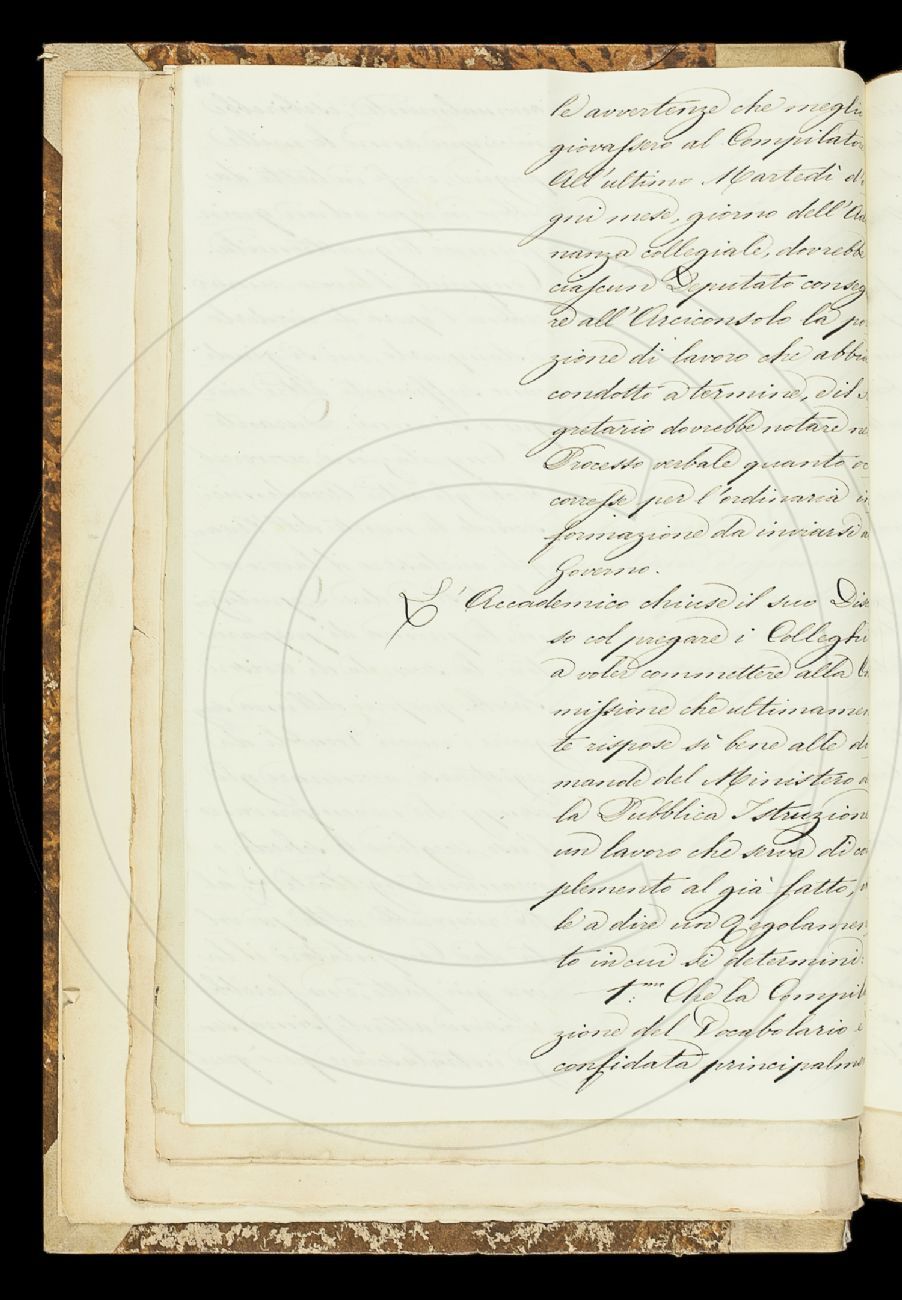 le avvertenze che megli
giovassero al Compilator
All'ultimo Martedì d'
gni mese, giorno dell'Adu
nanza collegiale, dovrebb
ciascun Deputato conseg
re all'Arciconsolo la po
zione di lavoro che abbi
condotto a termine, e il s
gretario dovrebbe notare ne
Processo verbale quanto oc
corresse per l'ordinaria in
formazione da inviarsi a
Governo.
L'Accademico chiuse il suo Dis
so col pregare i Collegh
a voler commettere alla C
missione che ultimamen
te rispose sì bene alle di
mande del Ministero d
la Pubblica Istruzion
un lavoro che serva di co
plemento al già fatto, v
le a dire un Regolamen
to in cui si determini:
1.mo Che la Compil
zione del Vocabolario è
confidata principalme